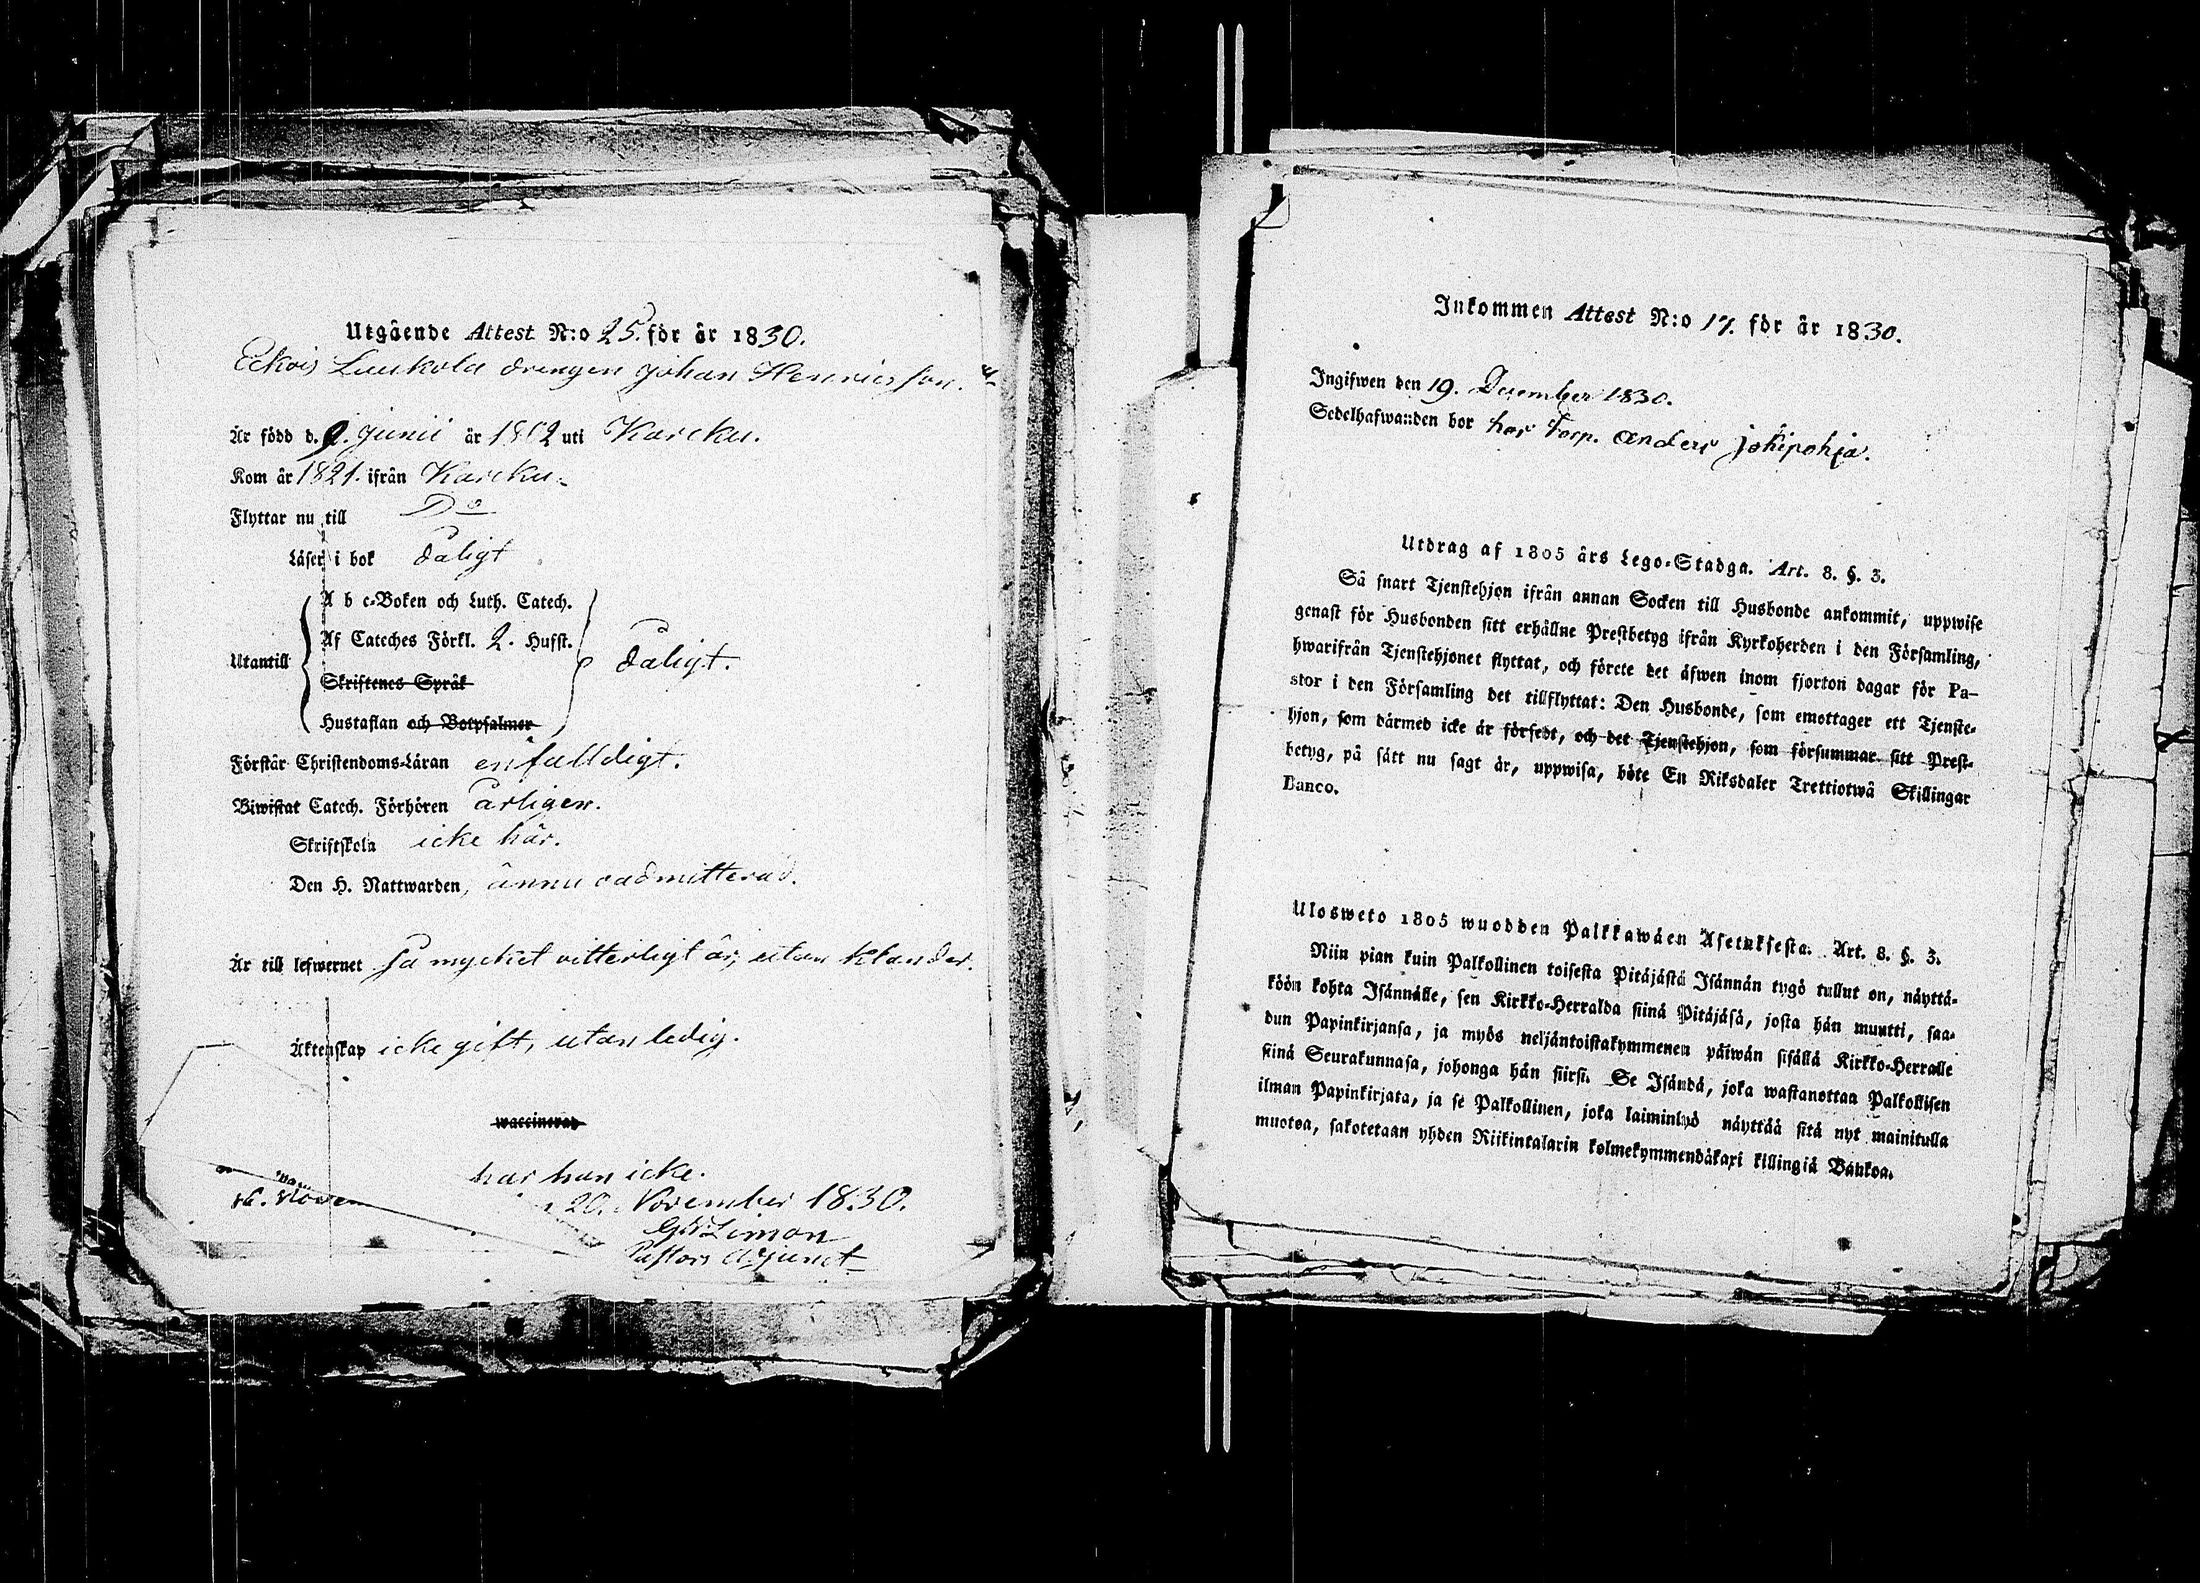 Utgående Attest N:o 25. för år 1830.
Eckois Laukola drengen Johan Henricsson.
Är född d. 9. Junii år 1802 uti Karcku.
Kom år 1821. ifrån Karcku.
Flyttar nu till Do
Läser i bok dåligt
A b c-Boken och Luth. Catech.
Af Cateches Förkl. 2. Hufst.
Utantill dåligt.
Skriftenes Språk
Hustaflan och Botpsalmer
Förstår Christendoms-Läran enfalldigt.
Biwistat Catech. Förhören årligen.
Skriftskola icke här.
Den H. Nattwarden, ännu oadmitterad.
Är till lefwernet så mycket vitterligt är, utan klander.
Äktenskap icke gift, utan ledig.
waccinerad
har han icke.
20. November 1830.
Limon
Pastors Adjunct
Inkommen Attest N:o 17. för år 1830.
Ingifwen den 19. December 1830.
Sedelhafwanden bor hos Torp. Anders Jokipohja.
Utdrag af 1805 års Lego-Stadga. Art. 8. §. 3.
Så snart Tjenstehjon ifrån annan Socken till Husbonde ankommit, uppwise
genast för Husbonden sitt erhållne Prestbetyg ifrån Kyrkoherden i den Församling,
hwarifrån Tjenstehjonet flyttat, och förete det äfwen inom fjorton dagar för Pa-
stor i den Församling det tillflyttat: Den Husbonde, som emottager ett Tjenste-
hjon, som därmed icke är försedt, och det Tjenstehjon, som försummar sitt Prest-
betyg, på sätt nu sagt är, uppwisa, böte En Riksdaler Trettiotwå Skillingar
Banco.
Ulosweto 1805 wuodden Palkkawäen Asetuksesta. Art. 8. §. 3.
Niin pian kuin Palkollinen toisesta Pitäjästä Isännän tygö tullut on, näyttä-
köön kohta Isännälle, sen Kirkko-Herralda siinä Pitäjäsä, josta hän muutti, saa-
dun Papinkirjansa, ja myös neljäntoistakymmenen päiwän sisällä Kirkko-Herralle
siinä Seurakunnasa, johonga hän siirsi. Se Isändä, joka wastanottaa Palkollisen
ilman Papinkirjata, ja se Palkollinen, joka laiminlyö näyttää sitä nyt mainitulla
muotoa, sakotetaan yhden Riikintalarin kolmekymmendäkaxi killingiä Bankoa.